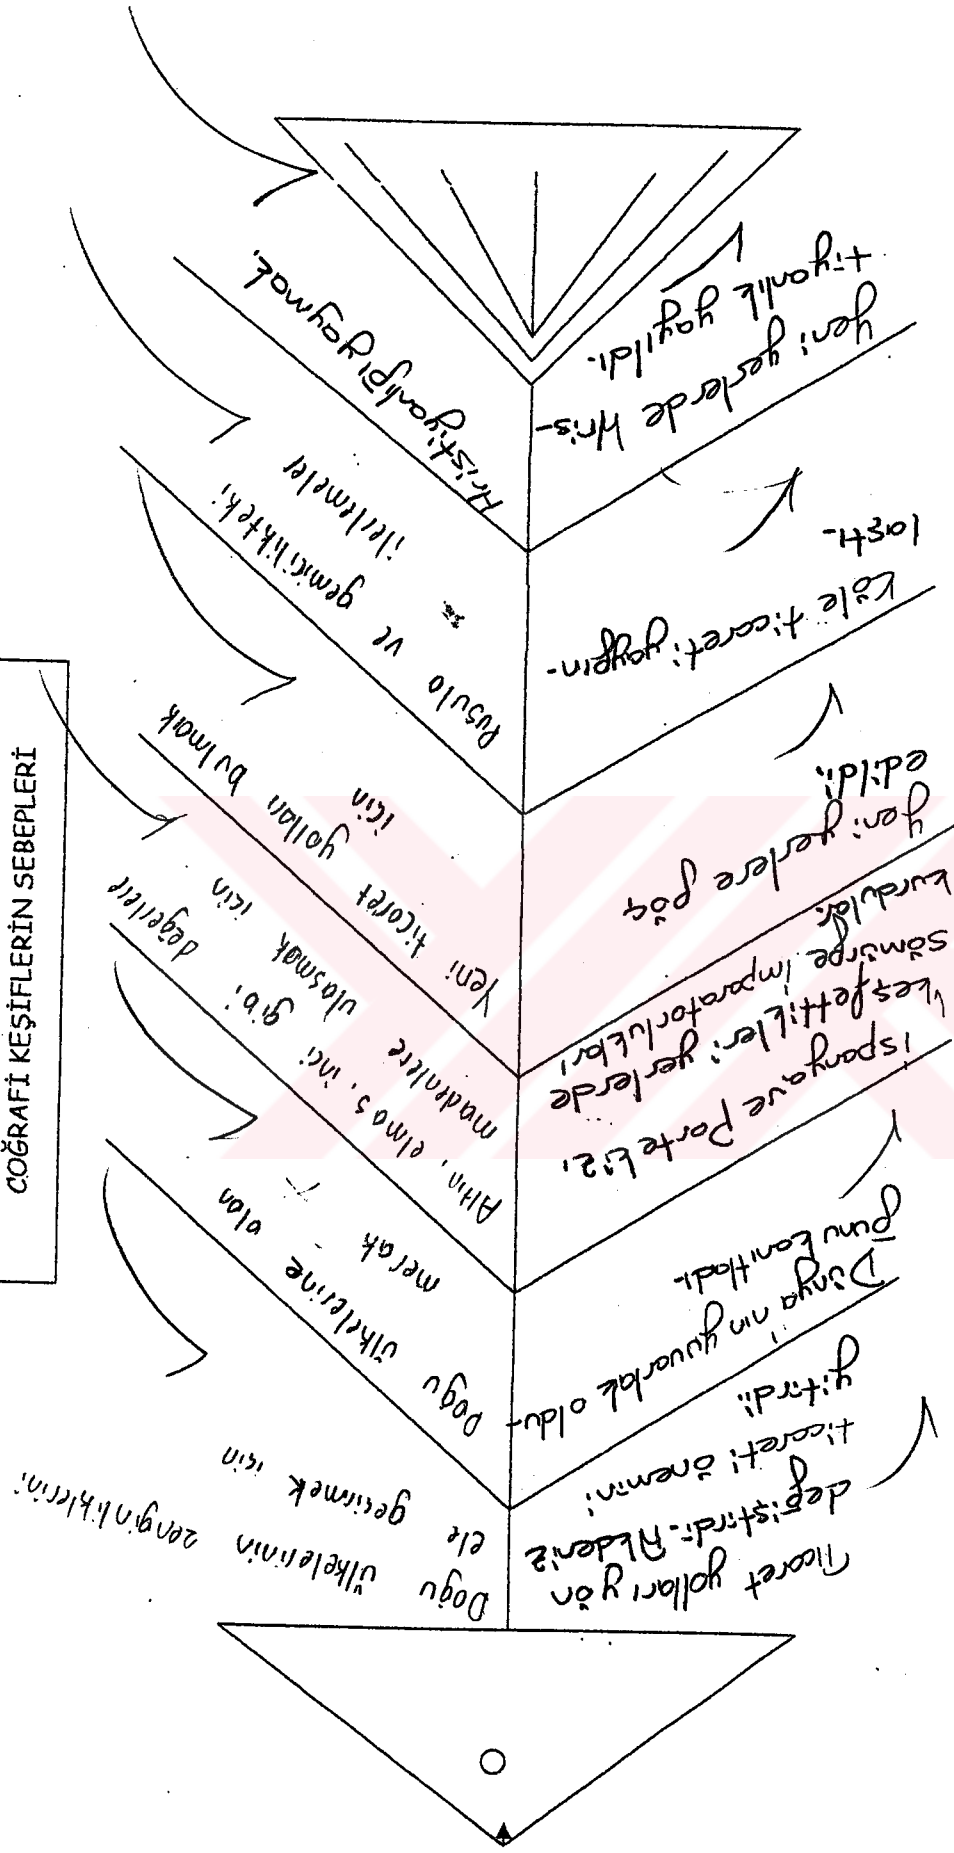 COĞRAFİ KEŞİFLERİN SEBEPLERİ
Doğu ülkelerinin zenginliklerini
ele geçirmek için
Doğu ülkelerine olan
merak
Altın, elmas, inci gibi değerlere
madenlere ulaşmak için
Yeni ticaret yolları bulmak
için
Pusula ve gemicilikteki
ilerlemeler
Hristiyanlığı yaymak.
Ticaret yolları yön
değiştirdi. Akdeniz
ticareti önemini
yitirdi.
Dünya'nın yuvarlak oldu-
ğunu kanıtladı.
İspanya ve Portekiz,
keşfettikleri yerlerde
sömürge imparatorlukları
kurdular.
yeni yerlere göç
edildi.
Köle ticareti yaygın-
laştı.
yeni yerlerde Hris-
tiyanlık yayıldı.